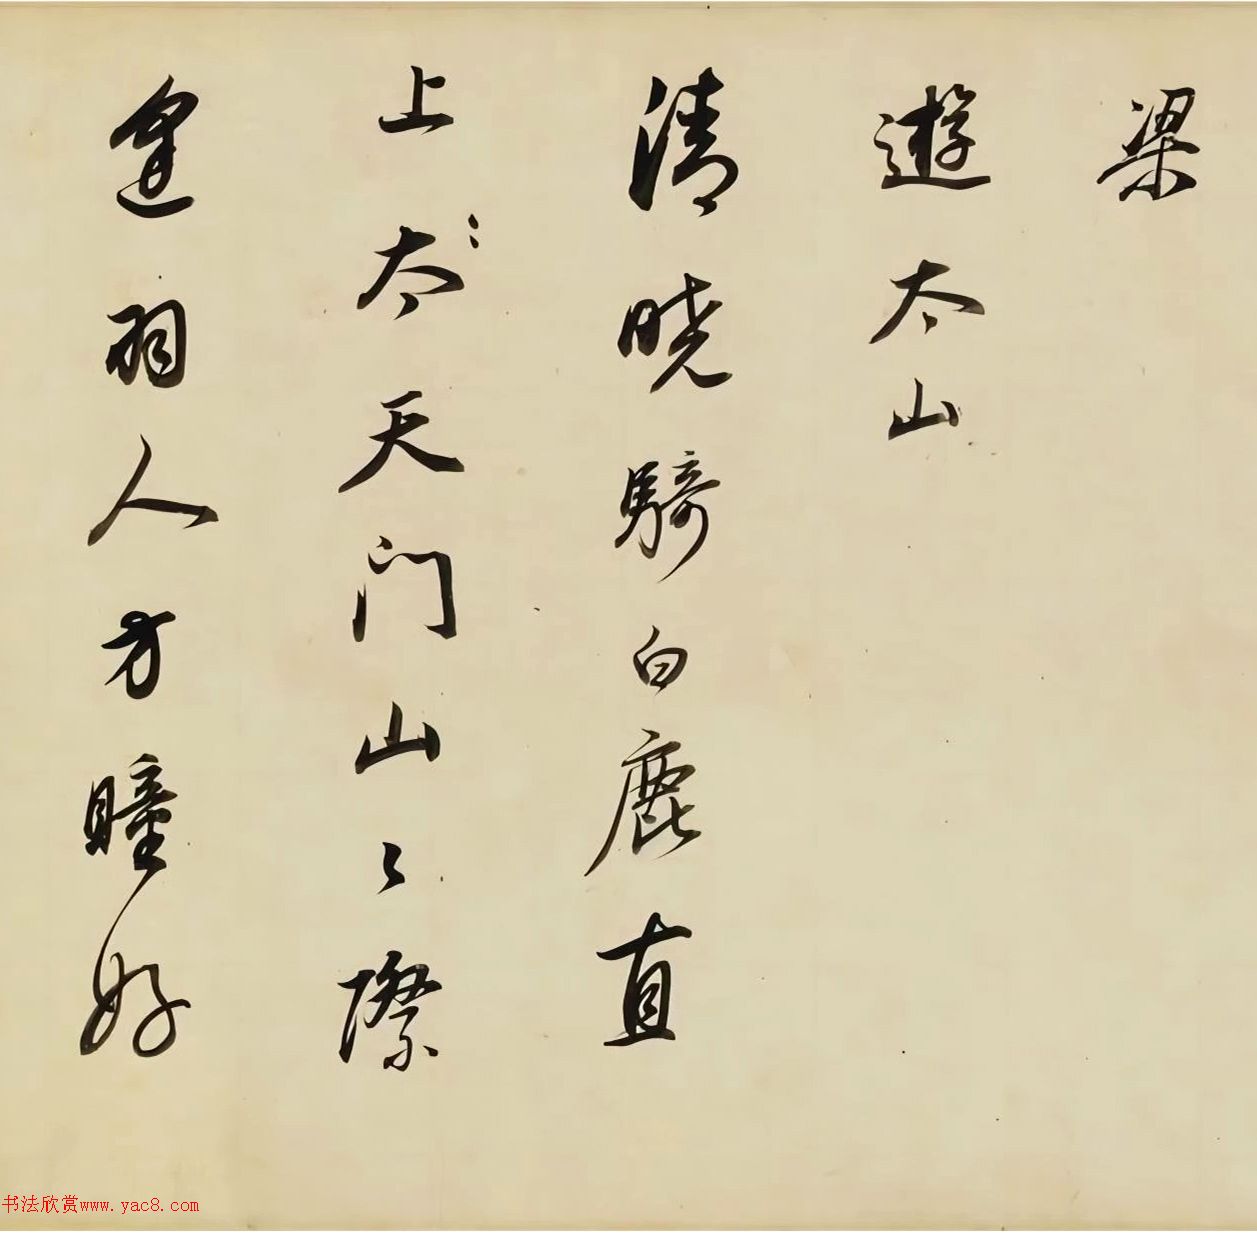 梁
遊太山
清曉騎白鹿直
上太天門山〻際
逢羽人方瞳好
书法欣赏www.yac8.com